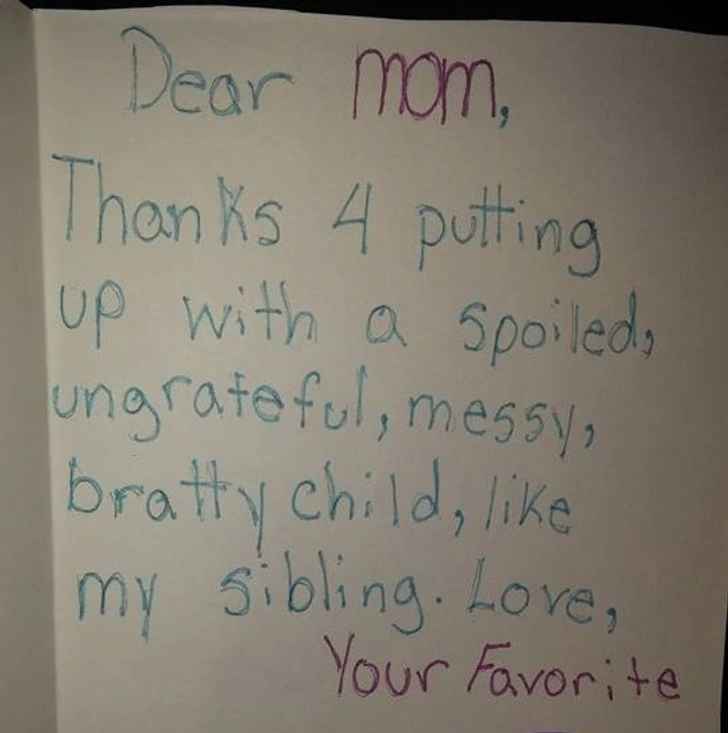 Dear mom,
Thanks 4 putting
up with a spoiled,
ungrateful, messy,
bratty child, like
my sibling. Love,
Your Favorite